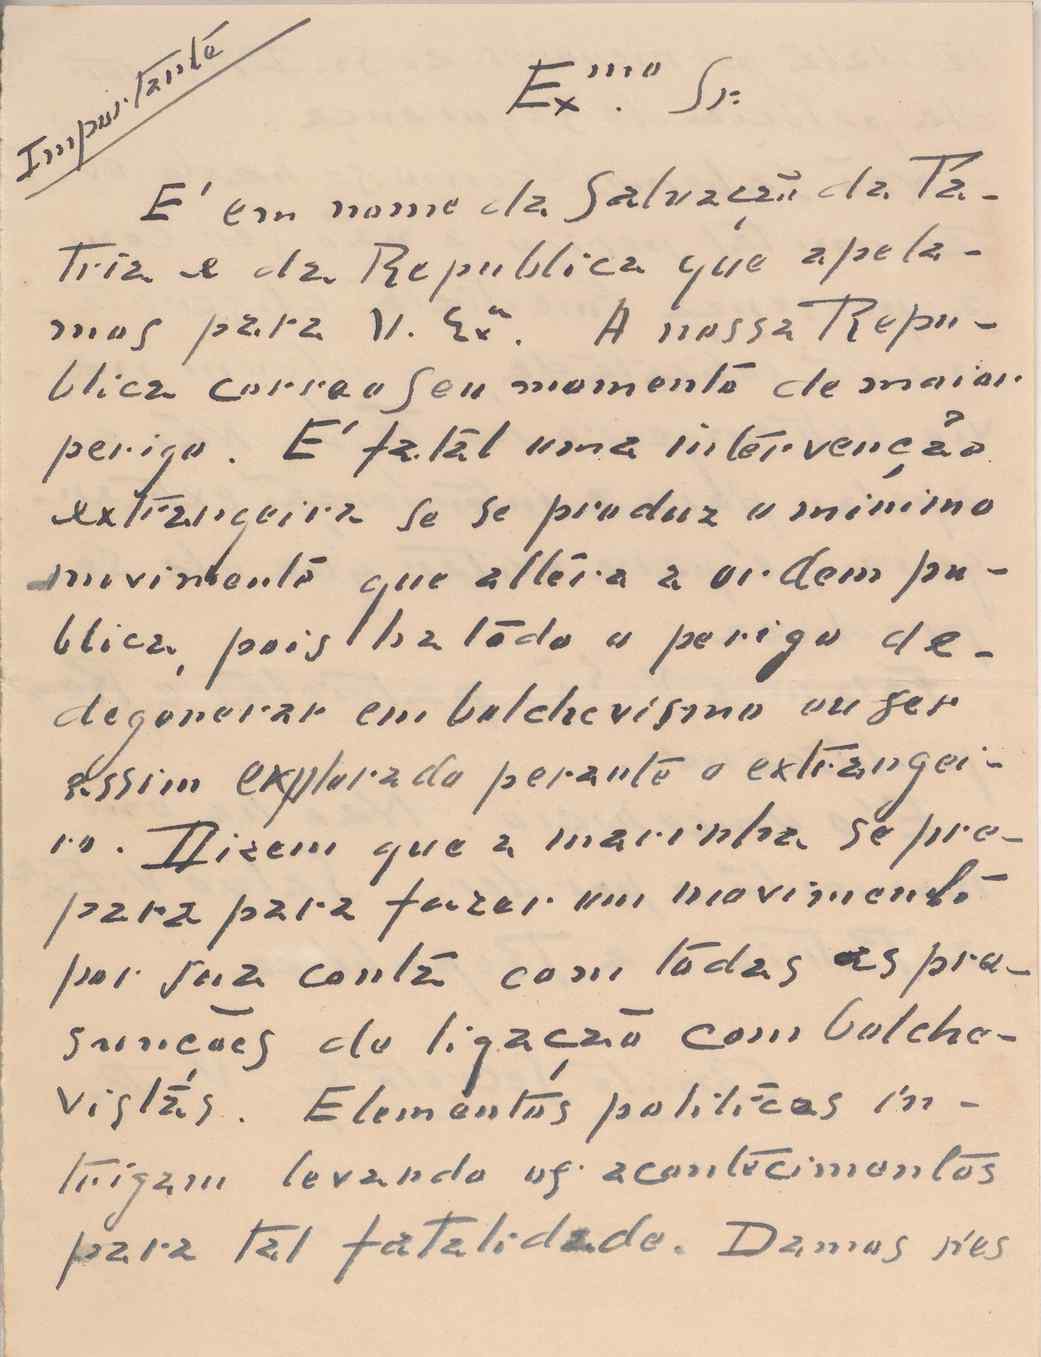 Importante
Ex.mo Sr.
E' em nome da Salvação da Pa-
tria e da Republica que apela-
mos para V. Exª. A nossa Repu-
blica corre o seu momento de maior
perigo. E' fatal uma intervenção
extrangeira se se produz o minimo
movimento que altéra a ordem pu-
blica, pois ha todo o perigo de-
degenerar em bolchevismo ou ser
assim explorado perante o extrangei-
ro. Dizem que a marinha se pre-
para para fazer um movimento
por sua conta com todas as pre-
sunções de ligação com bolche-
vistas. Elementos politicos in-
trigam levando os acontecimentos
para tal fatalidade. Damos nes